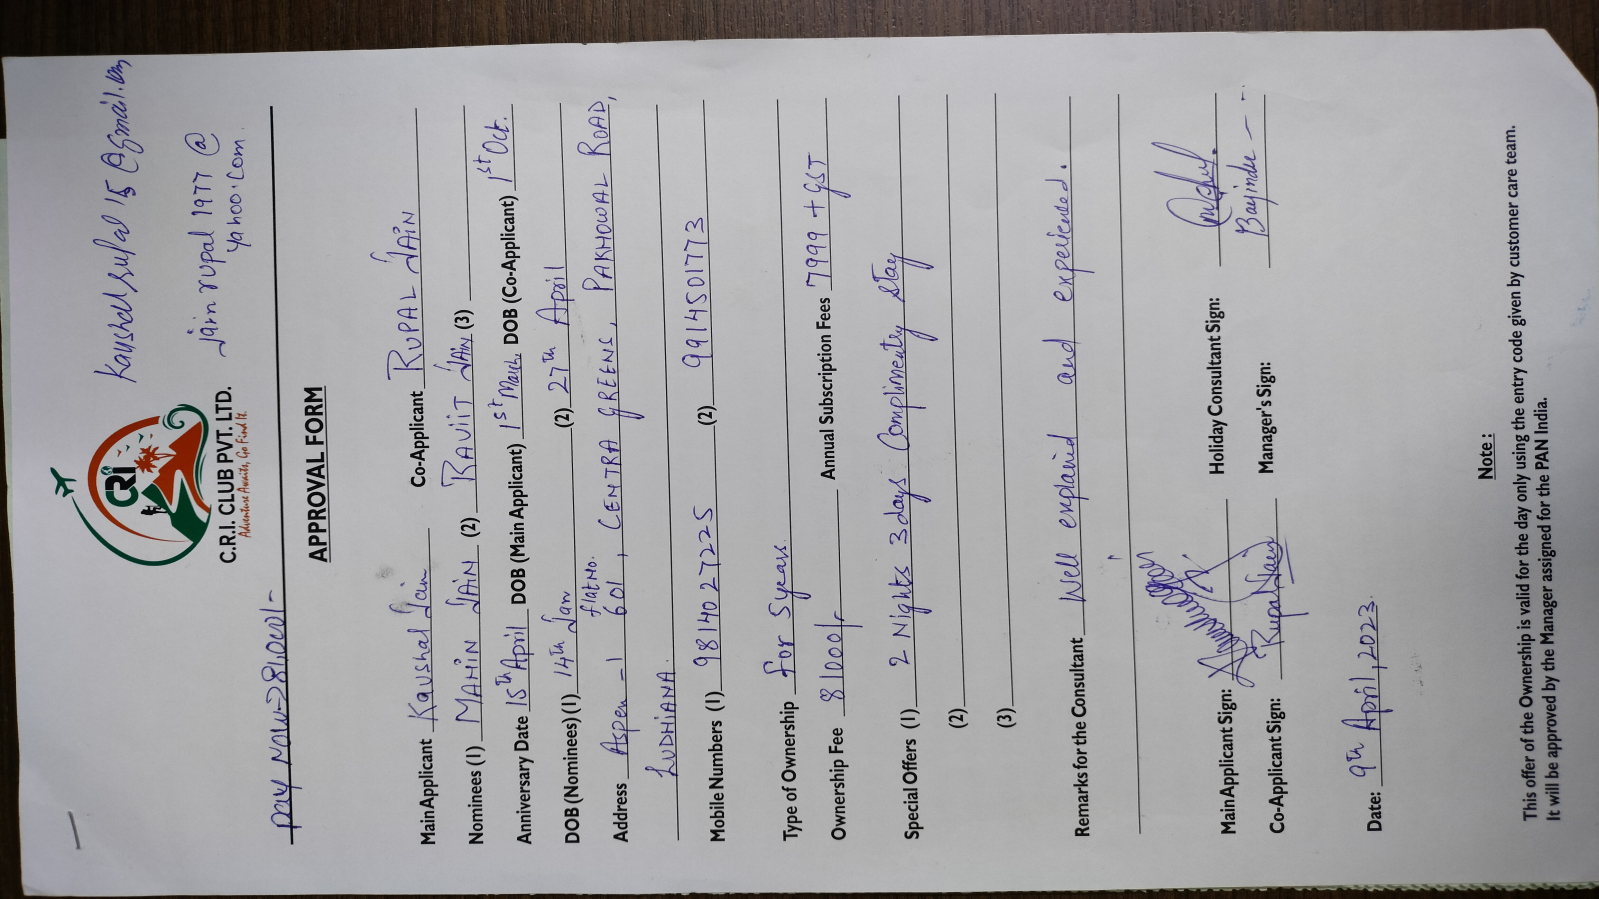 Kaushalrupal15@gmail.com
Jainrupal1977@
yahoo.com
CRI
C.R.I. CLUB PVT. LTD.
Adventure Awaits, Go Find It.
pay now → 81,000/-
APPROVAL FORM
Main Applicant Kaushal Jain Co-Applicant RUPAL JAIN
Nominees (1) MAHIN JAIN (2) RAVIIT JAIN (3)
Anniversary Date 15th April DOB (Main Applicant) 1st March DOB (Co-Applicant) 1st Oct.
DOB (Nominees) (1) 14th Jan (2) 27th April
Address Aspen - 1 flat No. 601, CENTRA GREENS, PAKHOWAL ROAD,
LUDHIANA.
Mobile Numbers (1) 9814027225 (2) 9914501773
Type of Ownership for 5 years.
Ownership Fee 81000/- Annual Subscription Fees 7999 + GST
Special Offers (1) 2 Nights 3 days Complimentry stay
(2)
(3)
Remarks for the Consultant Well explained and experienced.
Main Applicant Sign: Holiday Consultant Sign:
Co-Applicant Sign: Rupal Jain Manager's Sign:
Date: 9th April, 2023.
Note :
This offer of the Ownership is valid for the day only using the entry code given by customer care team.
It will be approved by the Manager assigned for the PAN India.